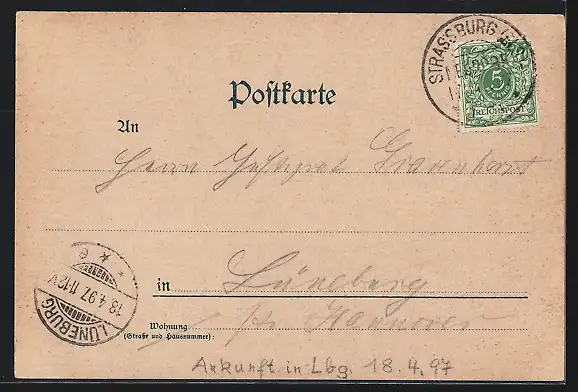 STRASSBURG
5
REICHSPOST
Postkarte
An
Herrn
in Lüneburg
Wohnung
(Straße und Hausnummer):
Hannover
LÜNEBURG
18.4.97. 11-12V.
Ankunft in Lbg. 18.4.97